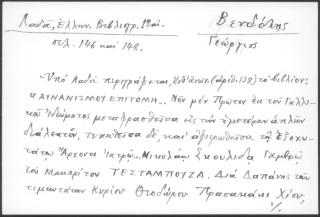 Λαδᾶ, Ἑλλην. Βιβλιογρ. 18 αἰ.
σελ. 146 καὶ 148.
Βενδότης
Γεώργιος
Ὑπὸ Λαδᾶ περιγράφεται (ἀριθ. 138) τὸ βιβλίον:
"ΑΥΝΑΝΙΣΜΟΥ ΕΠΙΤΟΜΗ... Νῦν μὲν Πρῶτον ἐκ τοῦ Γαλλι-
κοῦ Ἰδιώματος μεταφρασθεῖσα εἰς τὴν ἡμετέραν ἁπλῆν
διάλεκτον, τυπωθεῖσα δὲ, καὶ ἀφιερωθεῖσα τῷ Ἐξοχω-
τάτῳ Ἄρχοντι Ἰατρῷ... Νικολάῳ Σκουλίδᾳ Γαμβρῷ
τοῦ Μακαρίτου ΤΕΣΤΑΜΠΟΥΖΑ. Διὰ Δαπάνης τοῦ
τιμιωτάτου Κυρίου Θεοδώρου Πρασακάκι Χίου,
./.